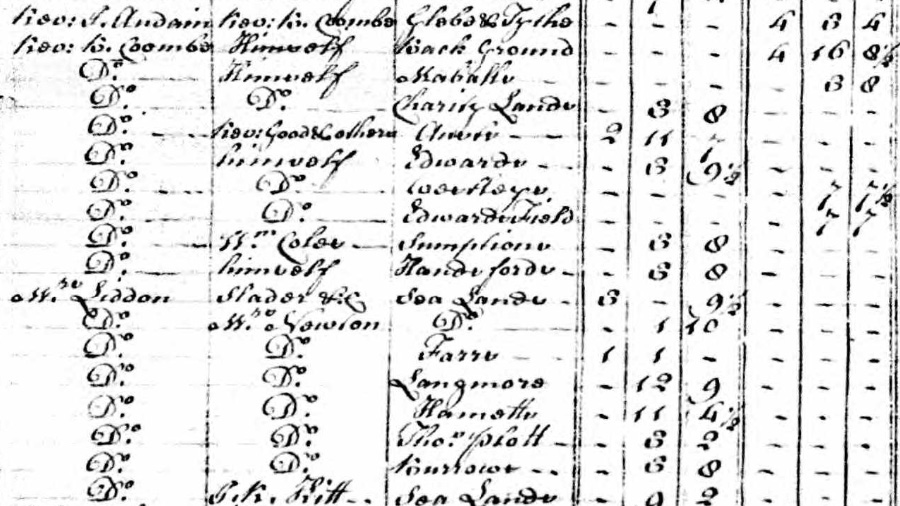 Rev: J. Audain Rev: R. Coombe Glebe & Tythe - - - 4 3 4
Rev: R. Coombe Himself Back Ground - - - 4 16 8½
Do. Himself - - - - 3 8
Do. Do. Charity Lands - 3 8 - - -
Do. Rev: Good & others 2 11 7 - - -
Do. himself Edwards - 3 9½ - - -
Do. Do. Westleys - - - - 7 7½
Do. Do. Edwards Field - - - - 7 7
Do. Wm. Coles Sumptions - 3 8 - - -
Do. himself Handsfords - 3 8 - - -
Mrs. Liddon Slader &c Sea Lands 3 - 9½ - - -
Do. Mrs. Newton Do. - 1 10 - - -
Do. Do. Farrs 1 1 - - - -
Do. Do. Langmore - 12 9 - - -
Do. Do. Hametts - 11 4½ - - -
Do. Do. Thos. Plott - 3 2 - - -
Do. Do. Burrows - 3 8 - - -
Do. Sea Lands - 9 2 - - -